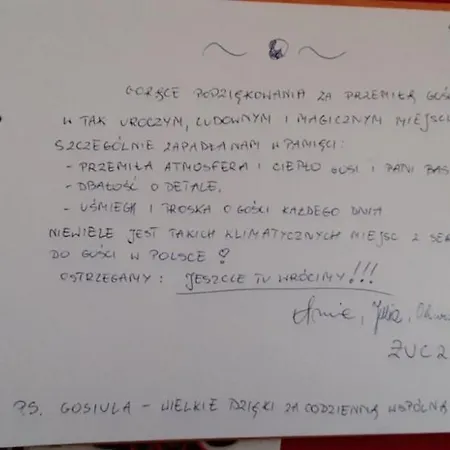 GORĄCE PODZIĘKOWANIA ZA PRZEMIŁĄ GOŚ
W TAK UROCZYM, CUDOWNYM I MAGICZNYM MIEJSC
SZCZEGÓLNIE ZAPADŁA NAM W PAMIĘCI:
- PRZEMIŁA ATMOSFERA I CIEPŁO GOSI I PANI BAS
- DBAŁOŚĆ O DETALE,
- UŚMIECH I TROSKA O GOŚCI KAŻDEGO DNIA
NIEWIELE JEST TAKICH KLIMATYCZNYCH MIEJSC Z SER
DO GOŚCI W POLSCE!
OSTRZEGAMY: JESZCZE TU WRÓCIMY!!!
Julia,
PS. GOSIULA - WIELKIE DZIĘKI ZA CODZIENNĄ WSPÓLNĄ